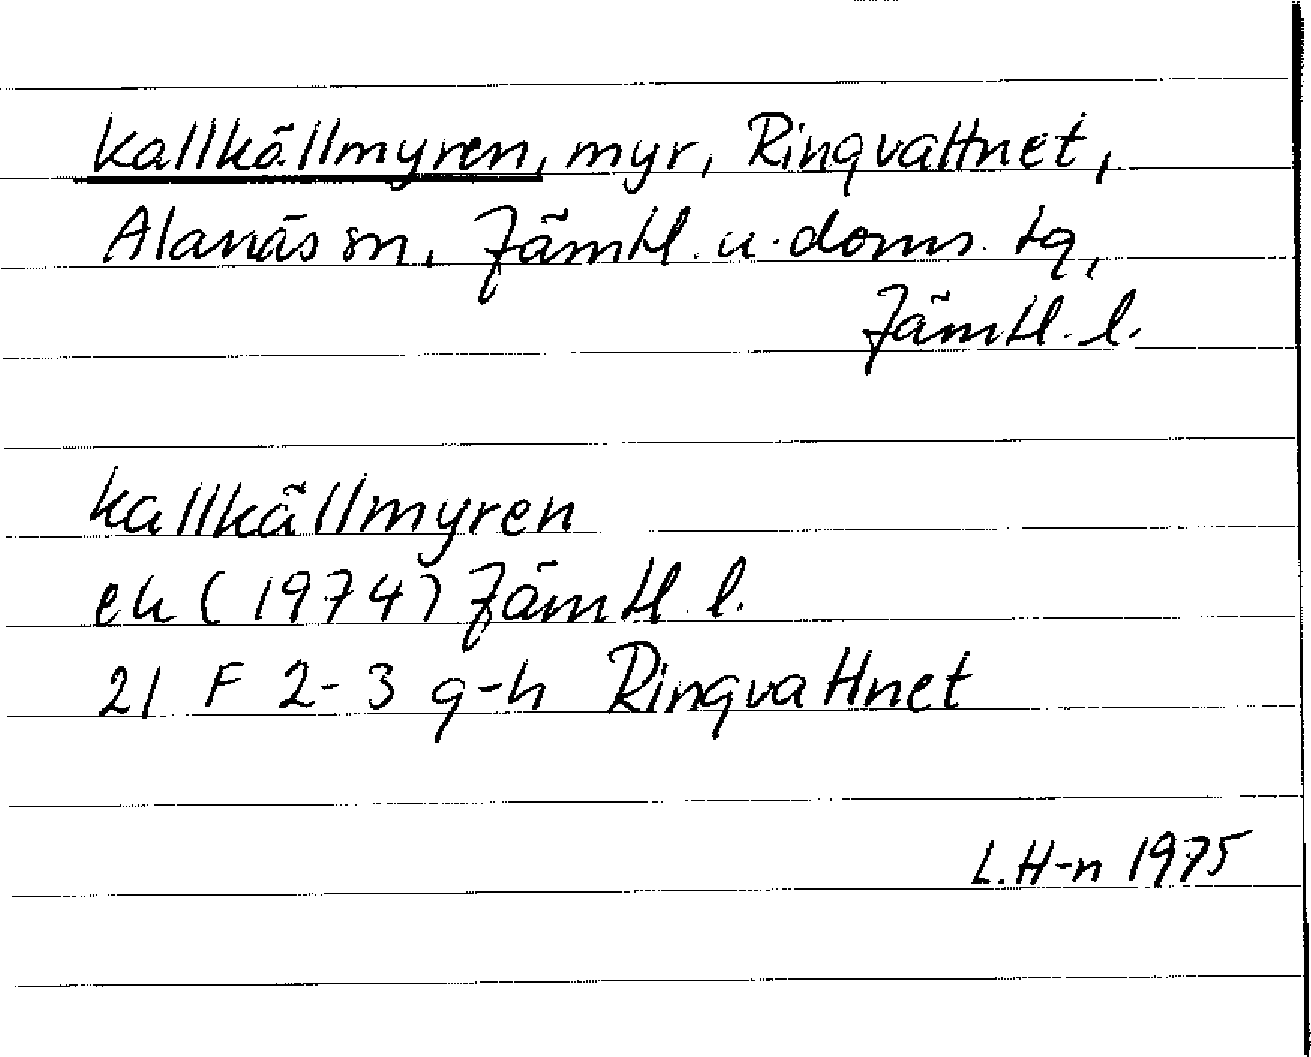 Kallkällmyren, myr, Ringvattnet,
Alanäs sn, Jämtl. u. doms. tg,
Jämtl. l.
Kallkällmyren
ek (1974) Jämtl. l.
21 F 2-3 g-h Ringvattnet
L.H-n 1975